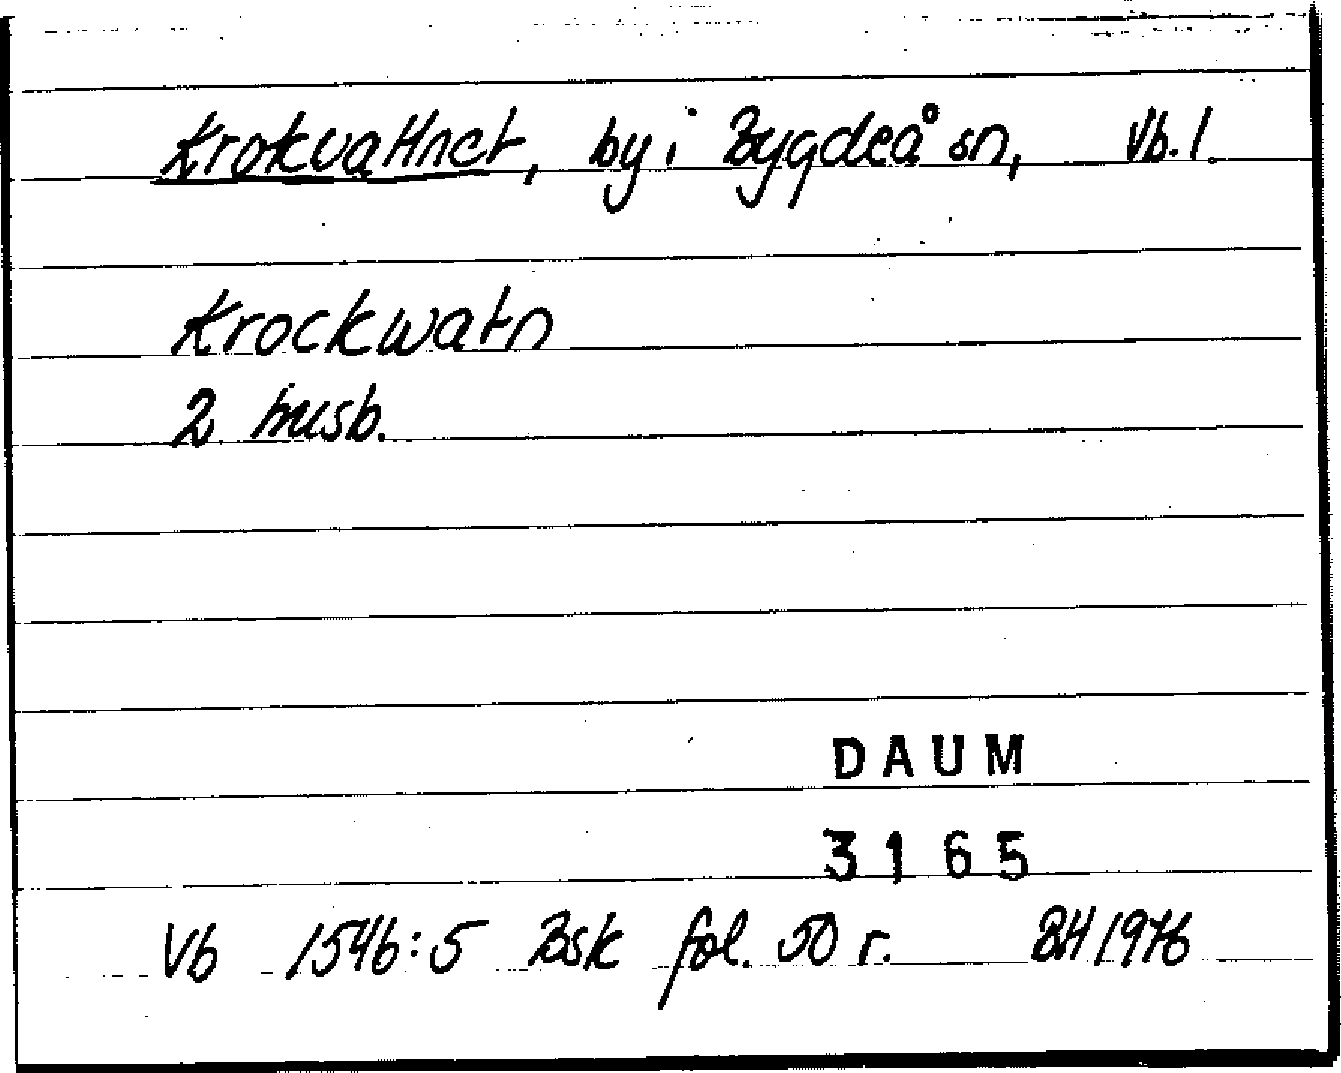 Krokvattnet, by i Bygdeå sn, Vb. l.
Krockwatn
2 husb.
DAUM
3165
Vb 1546:5 Bsk fol. 50 r. BH 1976